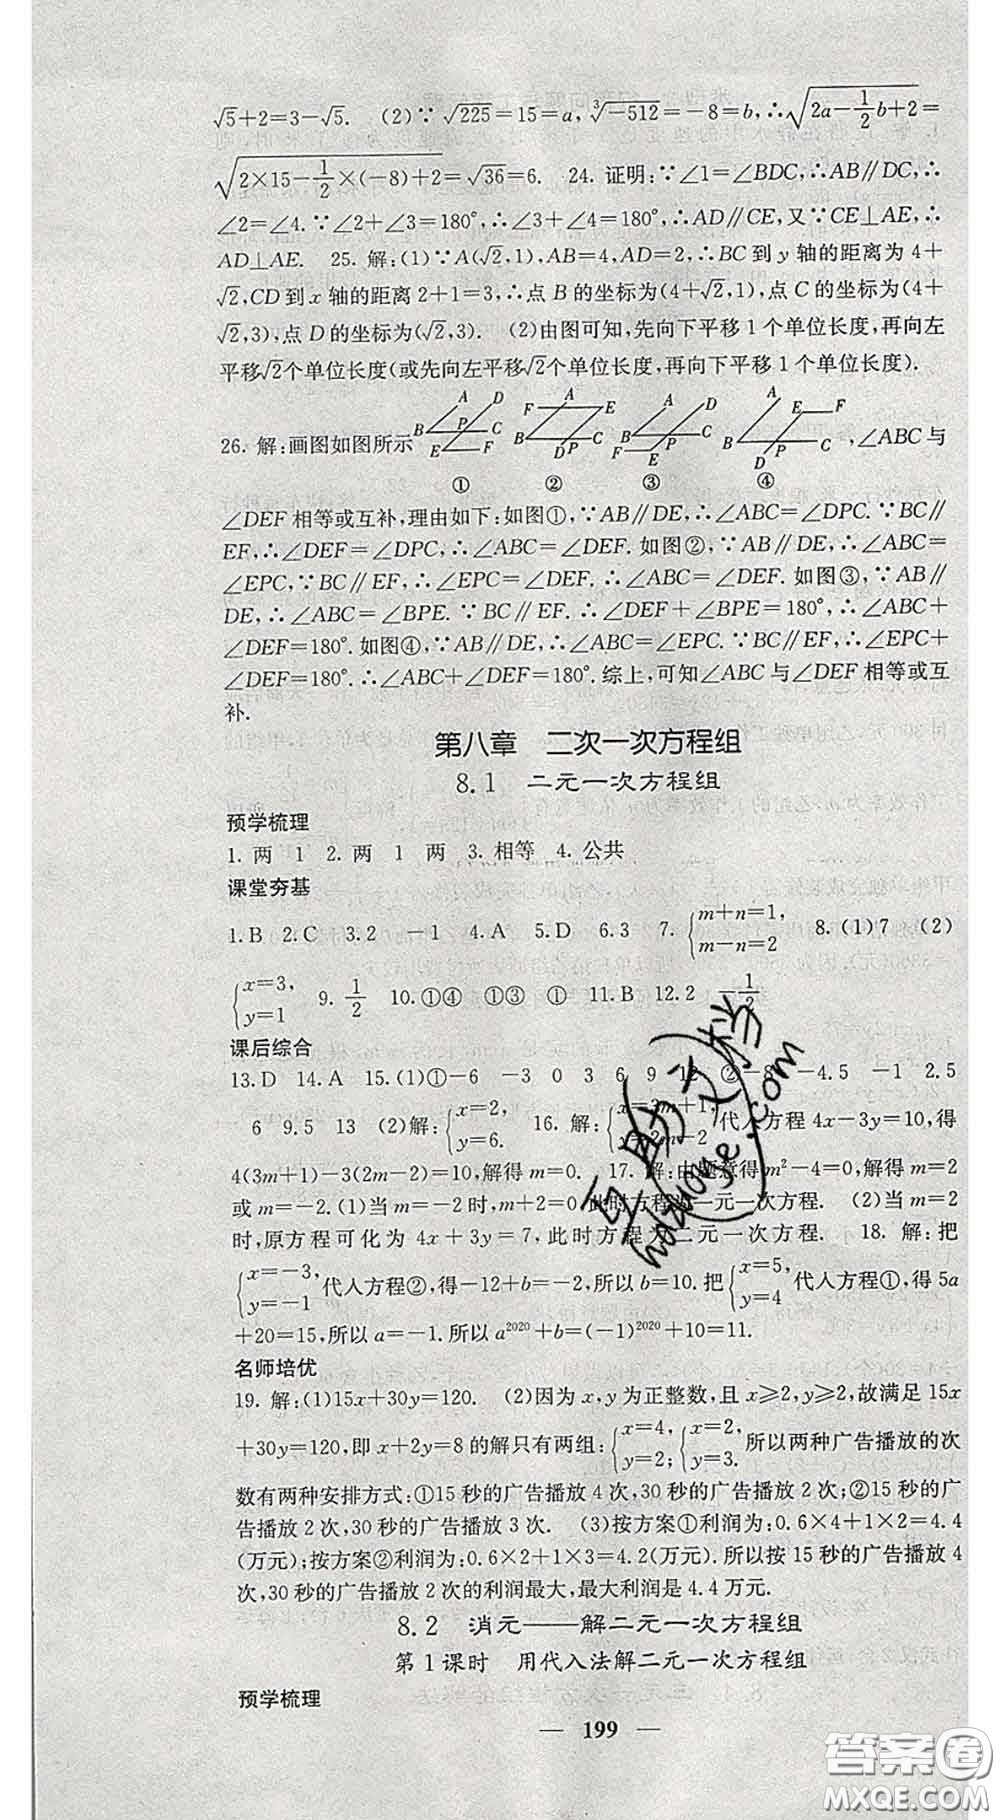 √5+2=3-√5. (2)∵√225=15=a,∛-512=-8=b,∴√(2a-1/2b+2)=
√(2×15-1/2×(-8)+2)=√36=6. 24. 证明:∵∠1=∠BDC,∴AB∥DF,∴
∠2=∠4.∵∠2+∠3=180°,∴∠3+∠4=180°,∴AD∥CE,又∵CE⊥AE,∴
AD⊥AE. 25. 解:(1)∵A(√2,1),AB=4,AD=2,∴BC到y轴的距离为4+
√2,CD到x轴的距离2+1=3,∴点B的坐标为(4+√2,1),点C的坐标为(4+
√2,3),点D的坐标为(√2,3). (2)由图可知,先向下平移1个单位长度,再向左
平移√2个单位长度(或先向左平移√2个单位长度,再向下平移1个单位长度).
A D B P C E F F A E B D P C A D B P C F E A E F B D P C
26. 解:画图如图所示 ,∠ABC与
① ② ③ ④
∠DEF相等或互补,理由如下:如图①,∵AB∥DE,∴∠ABC=∠DPC.∵BC∥
EF,∴∠DEF=∠DPC,∴∠ABC=∠DEF.如图②,∵AB∥DE,∴∠ABC=
∠EPC,∵BC∥EF,∴∠DEF=∠EPC.∴∠ABC=∠DEF.如图③,∵AB∥
DE,∴∠ABC=∠BPE.∵BC∥EF.∴∠DEF+∠BPE=180°,∴∠ABC+
∠DEF=180°.如图④,∵AB∥DE,∴∠ABC=∠EPC.∵BC∥EF,∴∠EPC+
∠DEF=180°.∴∠ABC+∠DEF=180°.综上,可知∠ABC与∠DEF相等或互
补.
第八章 二次一次方程组
8.1 二元一次方程组
预学梳理
1. 两 1 2. 两 1 两 3. 相等 4. 公共
课堂夯基
1.B 2.C 3.2 -1 4.A 5.D 6.3 7. {m+n=1, m-n=2 8.(1)7 (2)
{x=3, y=1 9. 1/2 10.①④ ①③ ① 11.B 12.2 -1/2
课后综合
13.D 14.A 15.(1)①-6 -3 0 3 6 9 12 ②-8 -4.5 -1 2.5
6 9.5 13 (2)解:{x=2, y=6. 16. 解:{x=3m+1, y=2m-2 代入方程4x-3y=10,得
4(3m+1)-3(2m-2)=10,解得m=0. 17. 解:由题意得m²-4=0,解得m=2
或m=-2.(1)当m=-2时,m+2=0此时方程为一元一次方程. (2)当m=2
时,原方程可化为4x+3y=7,此时方程为二元一次方程. 18. 解:把
{x=-3, y=-1 代入方程②,得-12+b=-2,所以b=10.把{x=5, y=4 代入方程①,得5a
+20=15,所以a=-1.所以a²⁰²⁰+b=(-1)²⁰²⁰+10=11.
名师培优
19. 解:(1)15x+30y=120. (2)因为x,y为正整数,且x≥2,y≥2,故满足15x
+30y=120,即x+2y=8的解只有两组:{x=4, y=2; {x=2, y=3. 所以两种广告播放的次
数有两种安排方式:①15秒的广告播放4次,30秒的广告播放2次;②15秒的广
告播放2次,30秒的广告播放3次. (3)按方案①利润为:0.6×4+1×2=4.4
(万元);按方案②利润为:0.6×2+1×3=4.2(万元).所以按15秒的广告播放4
次,30秒的广告播放2次的利润最大,最大利润是4.4万元.
8.2 消元——解二元一次方程组
第1课时 用代入法解二元一次方程组
预学梳理
— 199 —
答案圈
MXQE.COM